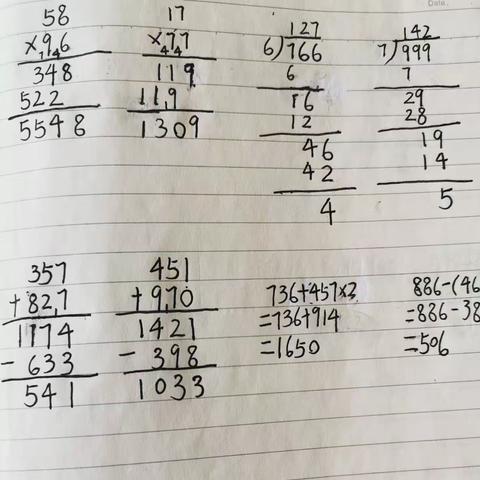 58
×96
348
522
5548
17
×77
119
119
1309
127
6)766
6
16
12
46
42
4
142
7)999
7
29
28
19
14
5
357
+827
1174
-633
541
451
+970
1421
-398
1033
736+457×2
=736+914
=1650
886-(46
=886-38
=506